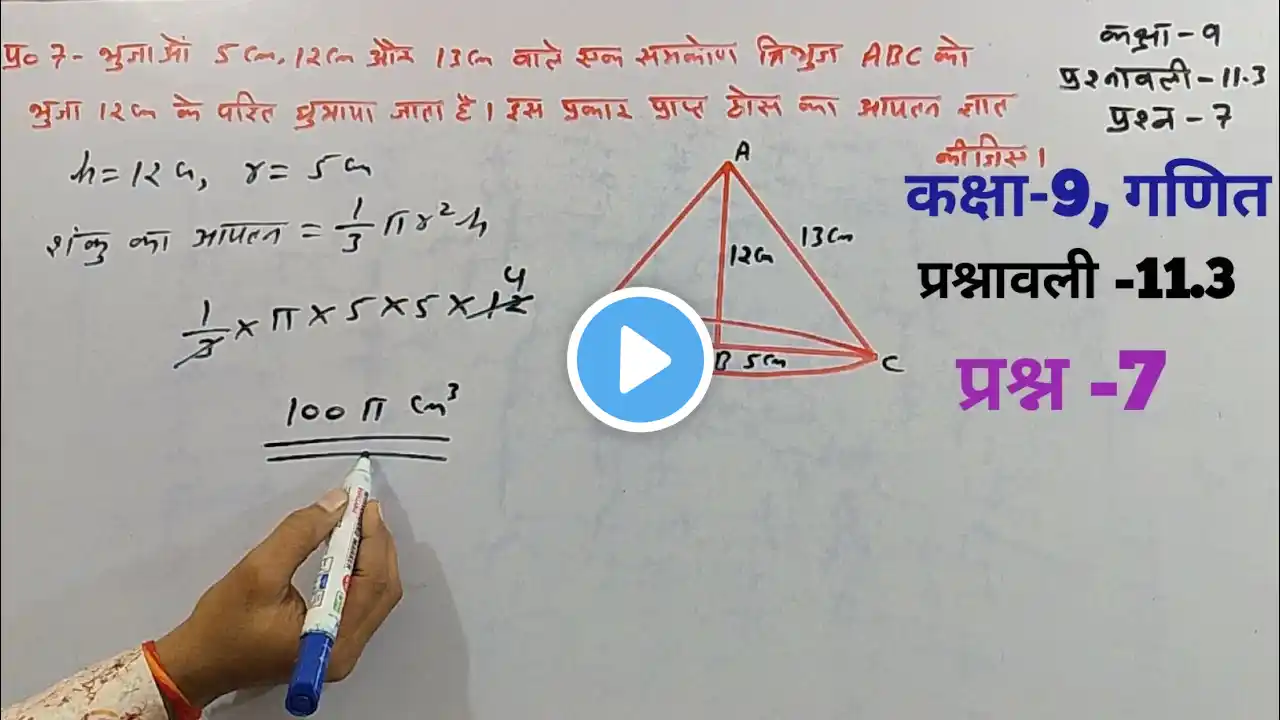 प्र० 7- भुजाओं 5 cm, 12 cm और 13 cm वाले एक समकोण त्रिभुज ABC को
भुजा 12 cm के परित घुमाया जाता है। इस प्रकार प्राप्त ठोस का आयतन ज्ञात
कीजिए।
कक्षा - 9
प्रश्नावली - 11.3
प्रश्न - 7
h = 12 cm, r = 5 cm
शंकु का आयतन = 1/3 π r² h
1/3 × π × 5 × 5 × 12
4
100 π cm³
A
12 cm
13 cm
B
5 cm
C
कक्षा-9, गणित
प्रश्नावली -11.3
प्रश्न -7